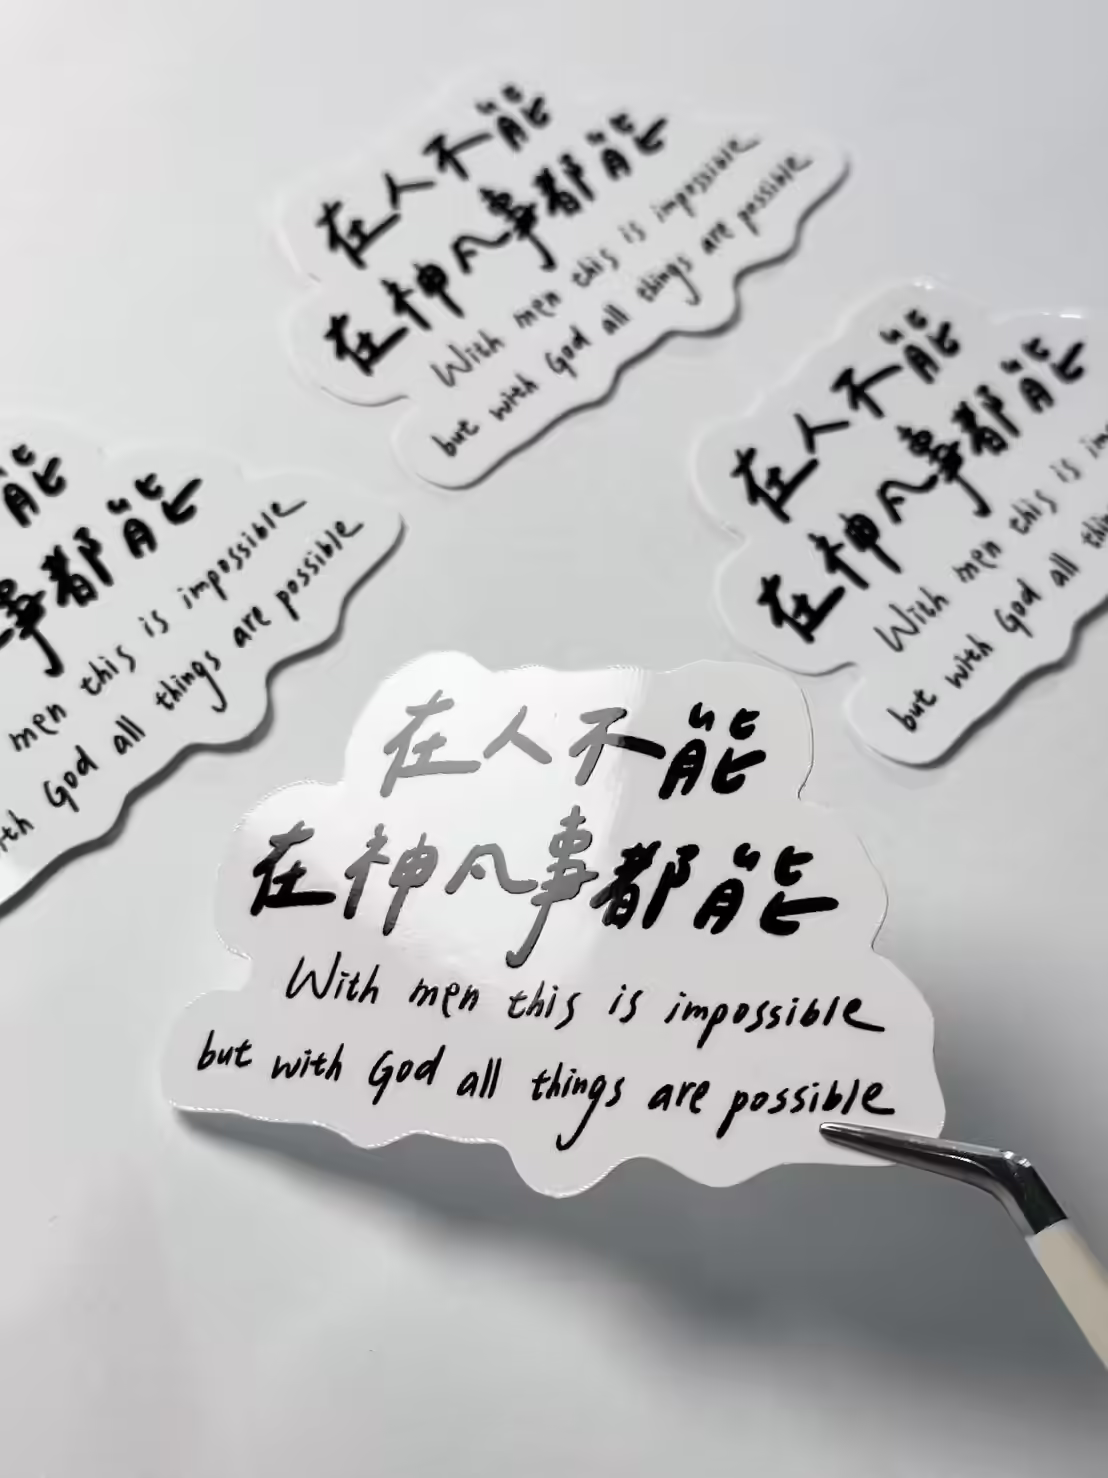 在人不能
在神凡事都能
With men this is impossible
but with God all things are possible
在人不能
在神凡事都能
With men this is im
but with God all thin
能
事都能
men this is impossible
th God all things are possible
在人不能
在神凡事都能
With men this is impossible
but with God all things are possible